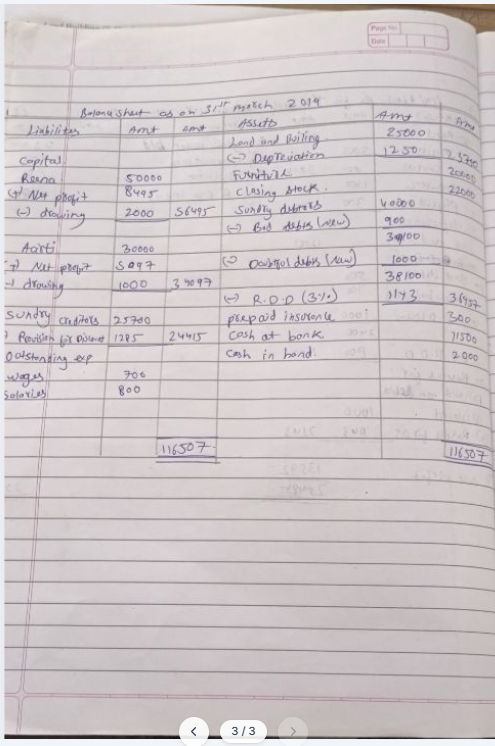 Page No.
Date
Balance sheet as on 31st march 2014
Liabilities Amt Amt Assets Amt Amt
Land and Builing 25000
Capital (-) Depreciation 1250 23750
Reena 50000 Furniture 20000
(+) Net profit 8495 Closing stock. 22000
(-) drawing 2000 56495 Sundry debtors 40000
(-) Bad debts (new) 900
Aarti 30000 39100
(+) Net profit 5097 (-) Doubtful debts (New) 1000
(-) drawing 1000 34097 38100
(-) R.D.D (3%) 1143 36957
Sundry creditors 25700 prepaid insurance 300
Provision for Discount 1285 24415 Cash at bank 11500
Outstanding exp Cash in hand 2000
wages 700
Salaries 800
116507 116507
3 / 3